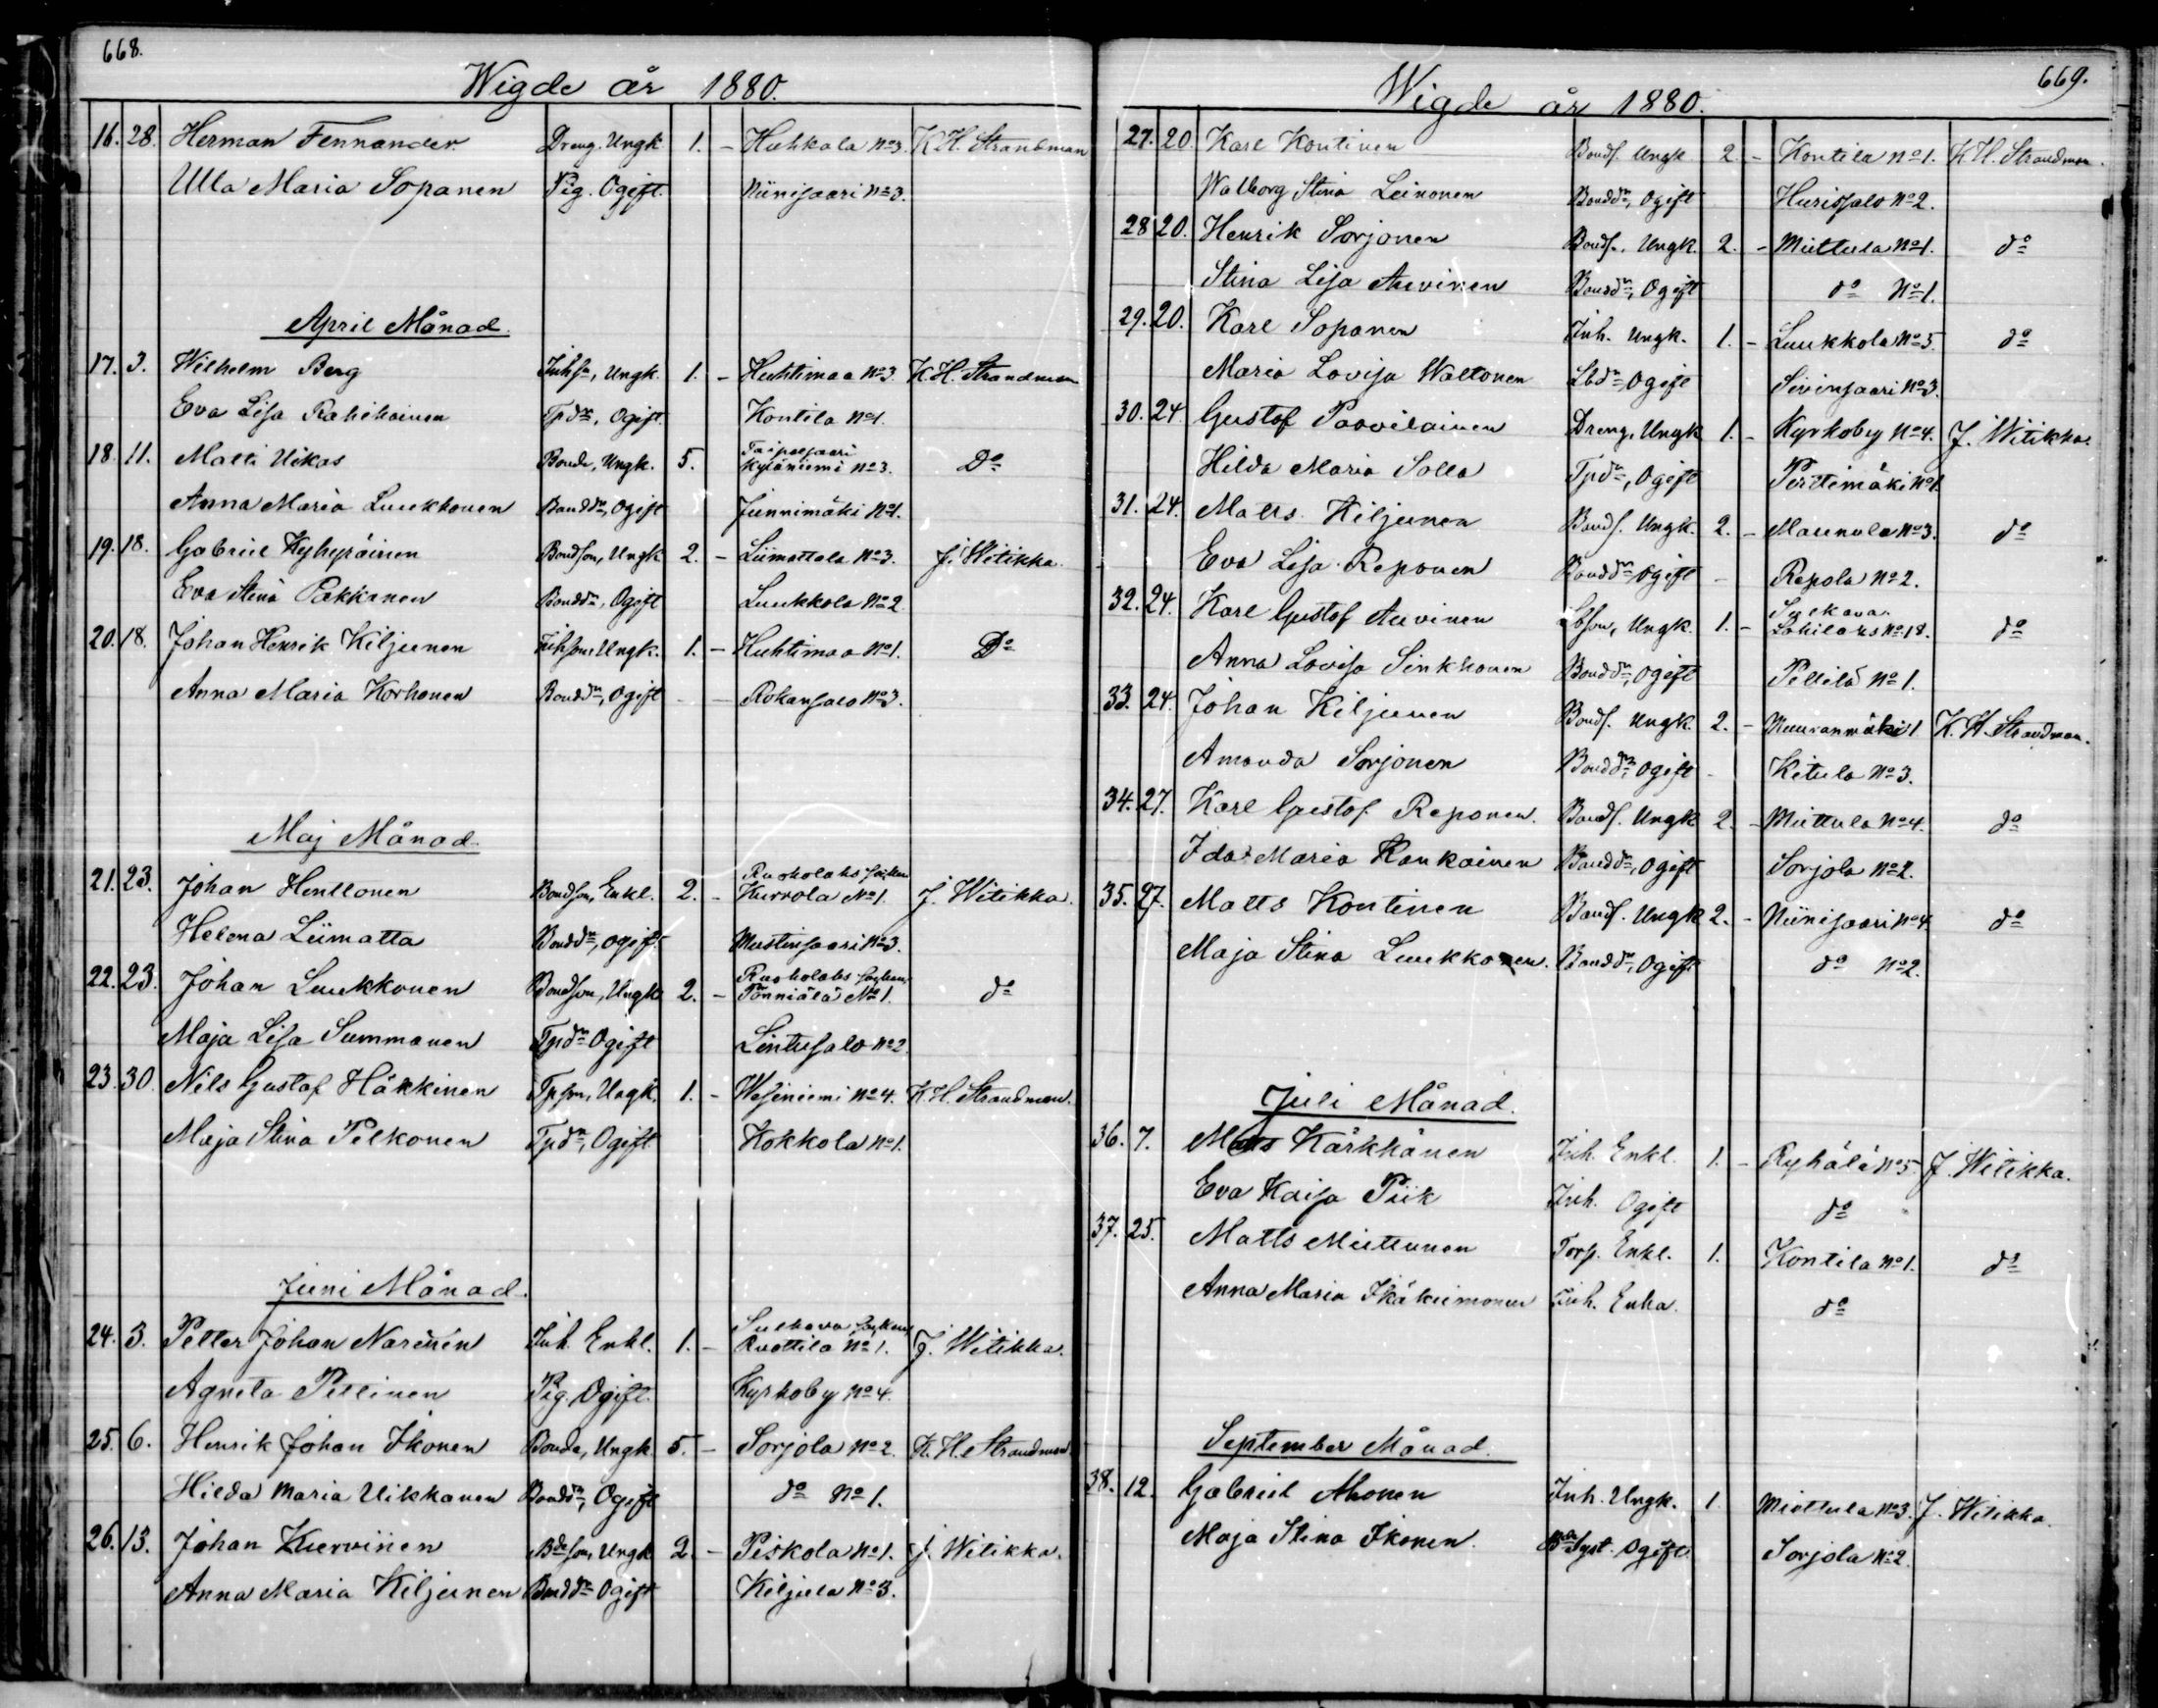 668.
Wigde år 1880.
16. 28. Herman Fennander Dreng. Ungk. 1. - Huhkala No 3. K.H. Strandman
Ulla Maria Sopanen Pig. Ogift. Niinisaari No 3.
April Månad.
17. 3. Wilhelm Berg Inhsn, Ungk. 1. - Huhtimaa No 3. K.H. Strandman
Eva Lisa Rahikainen Tpdr, Ogift. Kontila No 1.
Taipalsaari
18. 11. Matti Uikas Bonde, Ungk. 5. Kyläniemi No 3. Do
Anna Maria Luukkonen Bonddr, Ogift Junnimäki No 1.
19. 18. Gabriel Kyhyräinen Bondson, Ungk. 2. - Liimattala No 3. J. Witikka.
Eva Stina Pakkanen Bonddr, Ogift Luukkola No 2
20. 18. Johan Henrik Kiljunen Inhson, Ungk. 1. - Huhtimaa No 1. Do
Anna Maria Korhonen Bonddr, Ogift Rokansalo No 3.
Maj Månad.
Ruokolaks socken
21. 23. Johan Henttonen Bondson, Enkl. 2. - Kurrola No 1. J. Witikka.
Helena Liimatta Bonddr, ogift. Mustinsaari No 3.
Ruokolaks socken,
22. 23. Johan Luukkonen Bondson, Ungk 2. - Pönniälä No 1. do
Maja Lisa Summanen Tpdr Ogift Lintusalo No 2
23. 30. Nils Gustaf Häkkinen Tpson, Ungk. 1. - Wesiniemi No 4. K.H. Strandman.
Maja Stina Pelkonen Tpdr, Ogift Kokkola No 1.
Juni Månad.
Sulkava socken
24. 3. Petter Johan Narinen Inh. Enkl. 1. - Ruottila No 1. J. Witikka.
Agneta Pellinen Pig. Ogift. Kyrkoby No 4.
25. 6. Henrik Johan Ikonen Bonde, Ungk 5. - Sorjola No 2. K.H. Strandman
Hilda Maria Uikkanen Bonddr, Ogift do No 1.
26. 13. Johan Kurvinen Bdeson, Ungk 2. - Piskola No 1. J. Witikka.
Anna Maria Kiljunen Bonddr Ogift Kiljula No 3.
669.
Wigde år 1880.
27. 20. Karl Kontinen Bonds. Ungk. 2. - Kontila No 1. K.H. Strandman.
Walborg Stina Leinonen Bonddr, Ogift Hurissalo No 2.
28 20. Henrik Sorjonen Bonds. Ungk. 2. - Miettula No 1. do
Stina Lisa Auvinen Bonddr, Ogift do No 1.
29. 20. Karl Sopanen Inh. Ungk. 1. - Luukkola No 5. do
Maria Lovisa Waltonen Lbdr, Ogift Sivinsaari No 3.
30. 24. Gustaf Paavilainen Dreng, Ungk 1. - Kyrkoby No 4. J. Witikka.
Hilda Maria Solla Tpdr, Ogift Perttimäki No 1.
31. 24. Matts Kiljunen Bonds. Ungk. 2. - Maunula No 3. do
Eva Lisa Reponen Bonddr Ogift - Repola No 2.
Sulkava
32. 24. Karl Gustaf Auvinen Lbson, Ungk. 1. - Lohilaks No 18. do
Anna Lovisa Sinkkonen Bonddr, Ogift Pellilä No 1.
33. 24. Johan Kiljunen Bonds. Ungk. 2. - Muuranmäki 1 K.H. Strandman.
Amanda Sorjonen Bonddr, Ogift - Kitula No 3.
34. 27. Karl Gustaf Reponen. Bonds. Ungk 2. - Miettula No 4. do
Ida Maria Kaukainen Bonddr, Ogift Sorjola No 2.
35. 27. Matts Kontinen Bonds. Ungk 2. - Niinisaari No 4 do
Maja Stina Luukkonen. Bonddr, Ogift do No 2.
Juli Månad.
36. 7. Matts Kärkkänen Inh. Enkl. 1. - Ryhälä No 5 J. Witikka.
Eva Kaisa Piik Inh. Ogift do "
37. 25. Matts Miettunen Torp. Enkl. 1. Kontila No 1. do
Anna Maria Ikäheimonen Inh. Enka. do
September Månad.
38. 12. Gabriel Ahonen Inh. Ungk. 1. Miettula No 3. J. Witikka.
Maja Stina Ikonen. Bdesyst. Ogift Sorjola No 2.